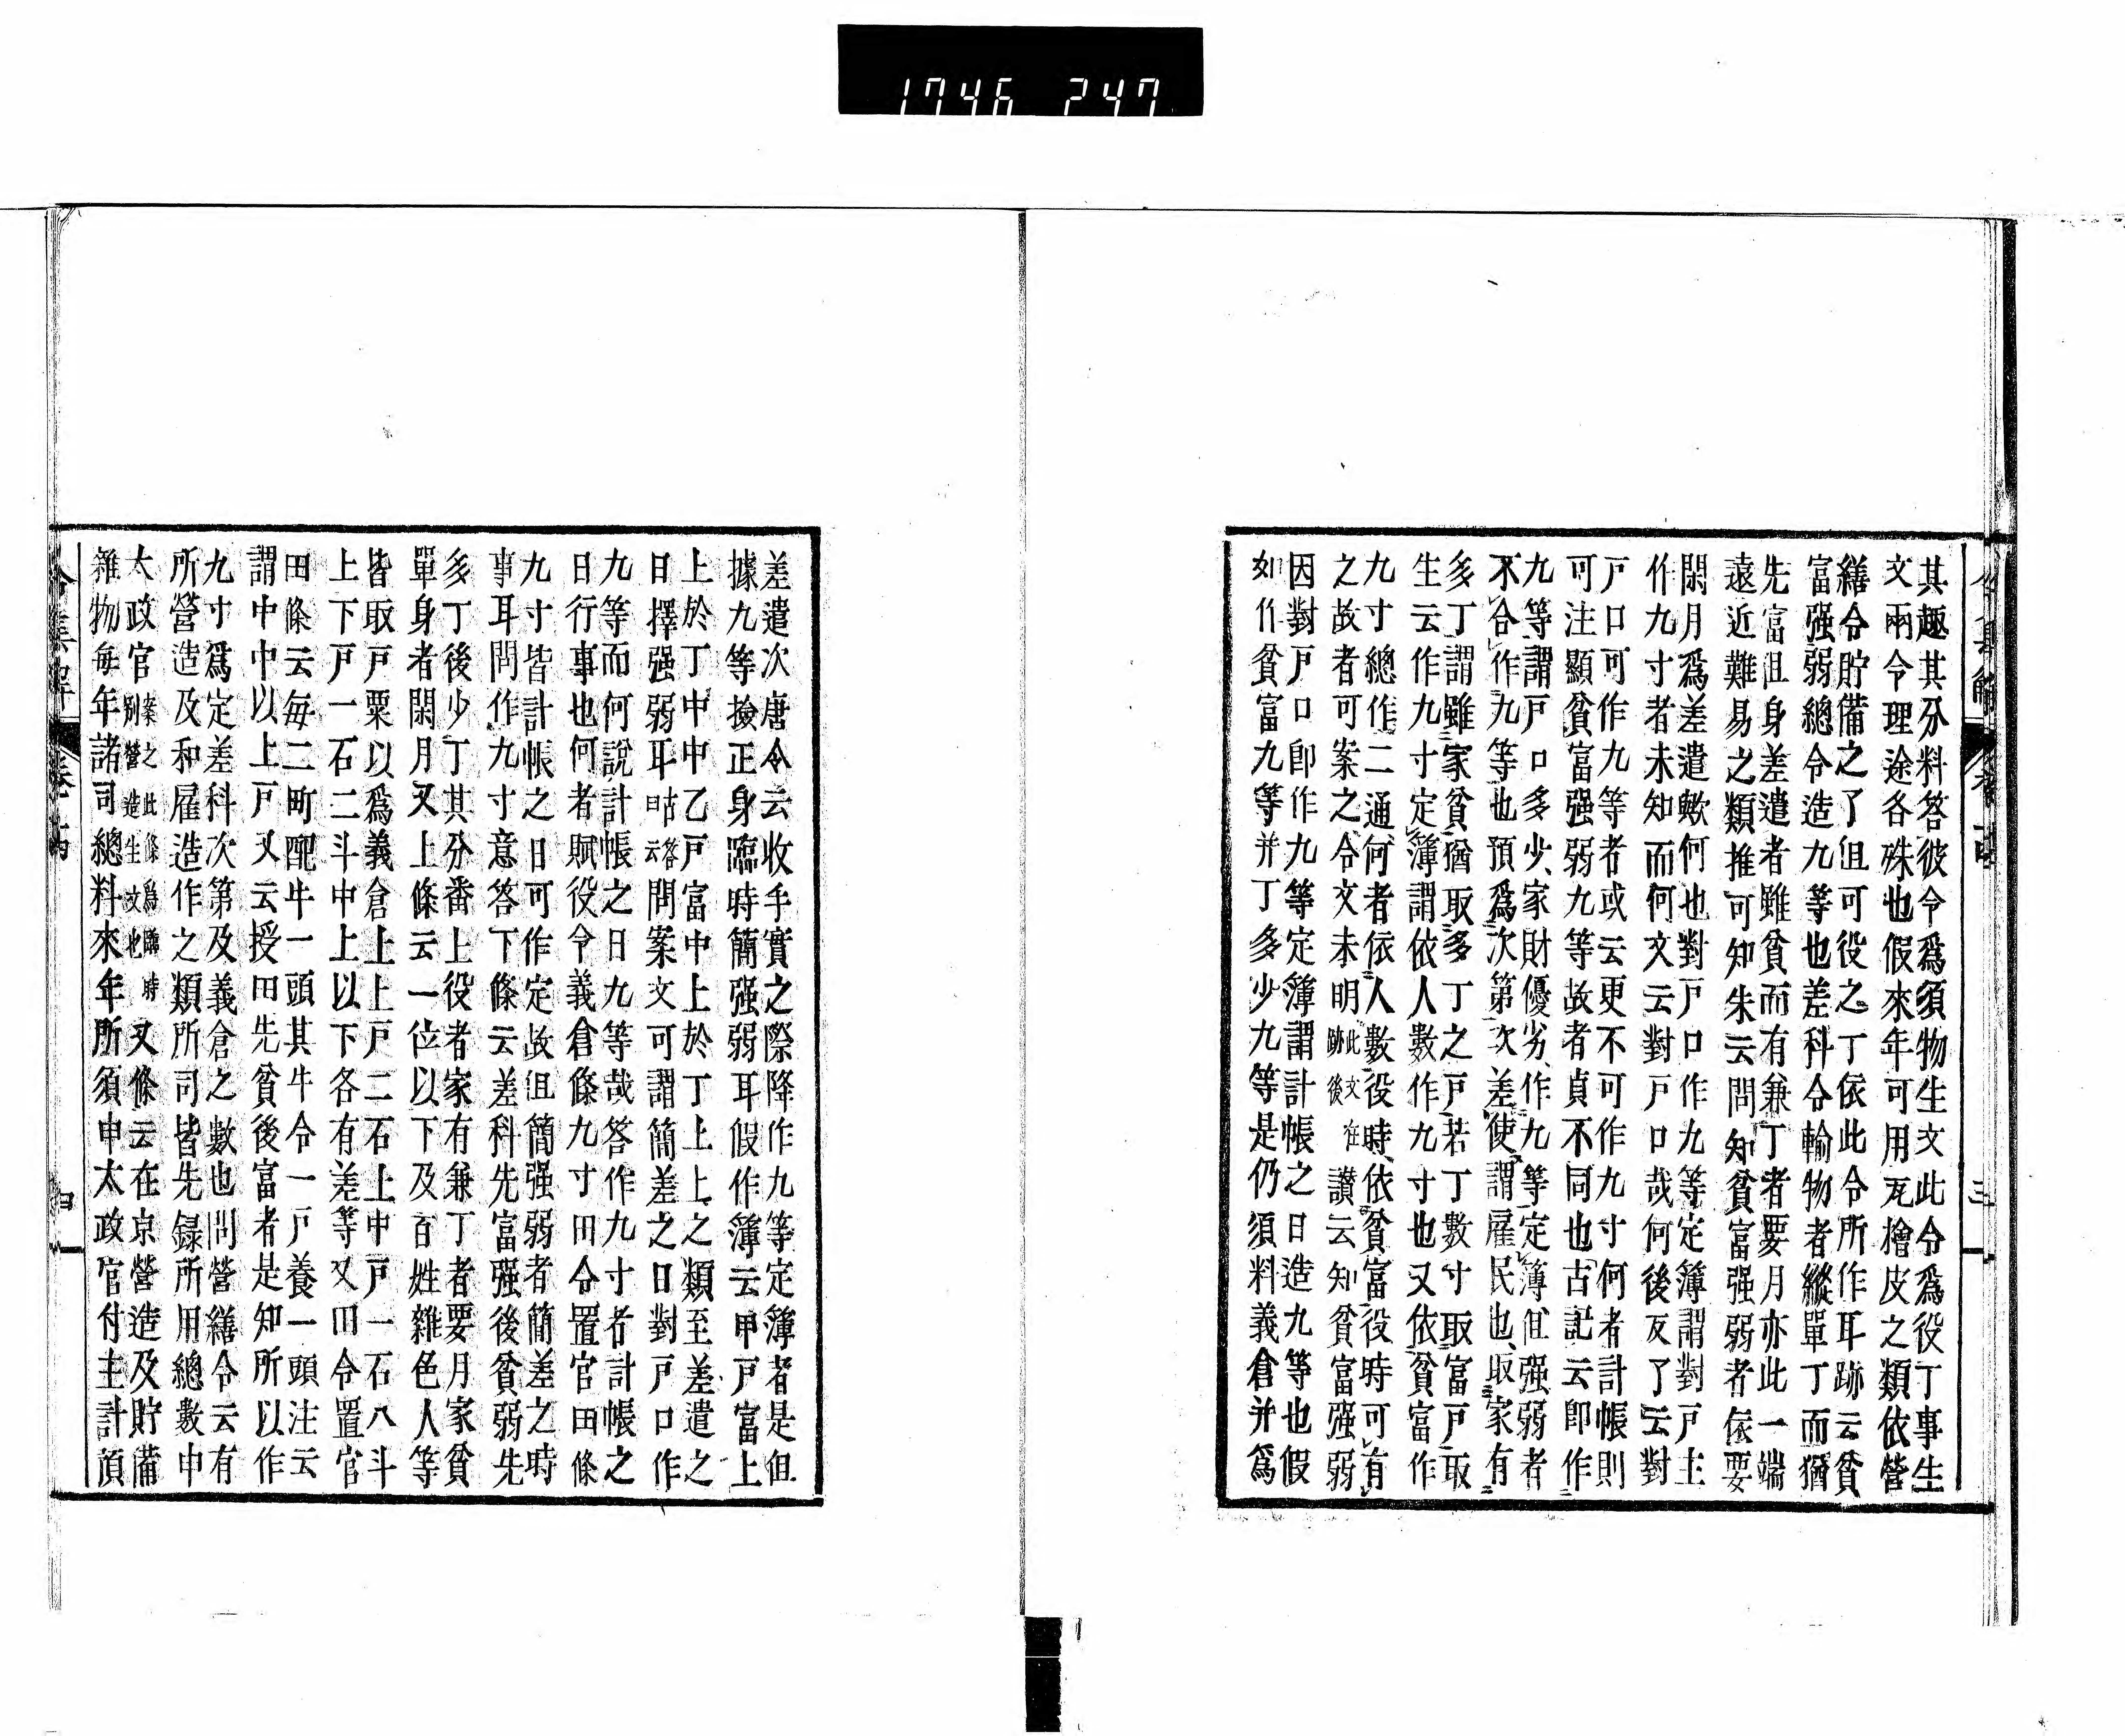 1746 247
其趣其分料答彼令爲須物生文此令爲役丁事生
文兩令理途各殊也假來年可用瓦檜皮之類依營
繕令貯備之了但可役之丁依此令所作耳跡云貧
富强弱總令造九等也差科令輸物者縱單丁而猶
先富但身差遣者雖貧而有兼丁者要月亦此一端
遠近難易之類推可知朱云問知貧富强弱者依要
閑月爲差遣歟何也對戸口作九等定簿謂對戸主
作九寸者未知而何文云對戸口哉何後反了云對
戸口可作九等者或云更不可作九寸何者計帳則
可注顯貧富强弱九等故者貞不同也古記云卽作
九等謂戸口多少家財優劣作九等定簿但强弱者
不合作九等也預爲次第次差使謂雇民也取家有
多丁謂雖家貧猶取多丁之戸若丁數寸取富戸取
生云作九寸定簿謂依人數作九寸也又依貧富作
九寸總作二通何者依人數役時依貧富役時可有
之故者可案之令文未明此文在跡後讃云知貧富强弱
因對戸口卽作九等定簿謂計帳之日造九等也假
如作貧富九等并丁多少九等是仍須料義倉并爲
三
差遣次唐令云收手實之際降作九等定簿者是但
據九等撿正身臨時簡强弱耳假作簿云甲戸富上
上於丁中中乙戸富中上於丁上上之類至差遣之
日擇强弱耳古答曰云問案文可謂簡差之日對戸口作
九等而何說計帳之日九等哉答作九寸者計帳之
日行事也何者賦役令義倉條九寸田令置官田條
九寸皆計帳之日可作定故但簡强弱者簡差之時
事耳問作九寸意答下條云差科先富强後貧弱先
多丁後少丁其分番上役者家有兼丁者要月家貧
單身者閑月又上條云一位以下及百姓雜色人等
皆取戸粟以爲義倉上上戸二石上中戸一石八斗
上下戸一石二斗中上以下各有差等又田令置官
田條云每二町配牛一頭其牛令一戸養一頭注云
謂中中以上戸又云授田先貧後富者是知所以作
九寸爲定差科次第及義倉之數也問營繕令云有
所營造及和雇造作之類所司皆先錄所用總數申
太政官案之此條爲臨時別營造生文也又條云在京營造及貯備
雜物每年諸司總料來年所須申太政官付主計預
令集解 卷十四